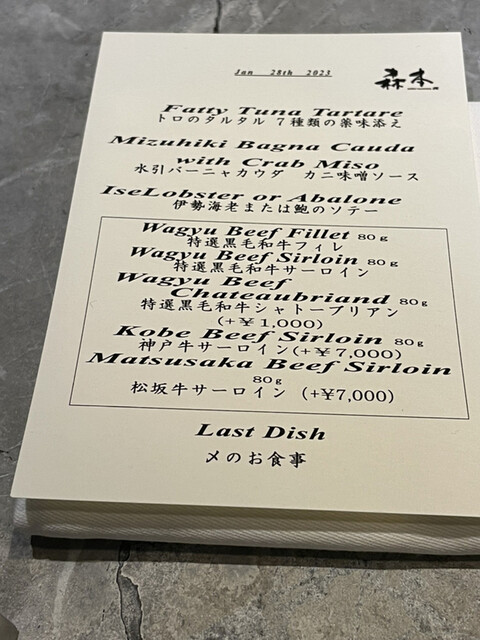 Jan 28th 2023
森本
Fatty Tuna Tartare
トロのタルタル 7種類の薬味添え
Mizuhiki Bagna Cauda
with Crab Miso
水引バーニャカウダ カニ味噌ソース
IseLobster or Abalone
伊勢海老または鮑のソテー
Wagyu Beef Fillet 80g
特選黒毛和牛フィレ
Wagyu Beef Sirloin 80g
特選黒毛和牛サーロイン
Wagyu Beef
Chateaubriand 80g
特選黒毛和牛シャトーブリアン
(+¥1,000)
Kobe Beef Sirloin 80g
神戸牛サーロイン(+¥7,000)
Matsusaka Beef Sirloin
80g
松坂牛サーロイン (+¥7,000)
Last Dish
〆のお食事